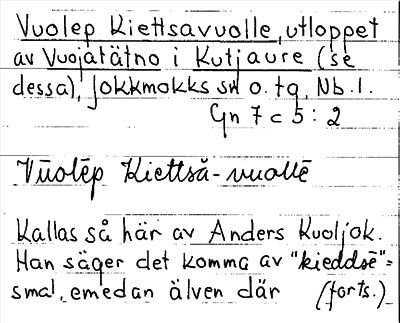 Vuolep Kiettsavuolle, utloppet
av Vuojatätno i Kutjaure (se
dessa), Jokkmokks sn o. tg, Nb. l.
Gn 7 c 5 : 2
Vūolēp Kiettsǎ-vuollē
Kallas så här av Anders Kuoljok.
Han säger det komma av "kieddsē"=
smal, emedan älven där (forts.)